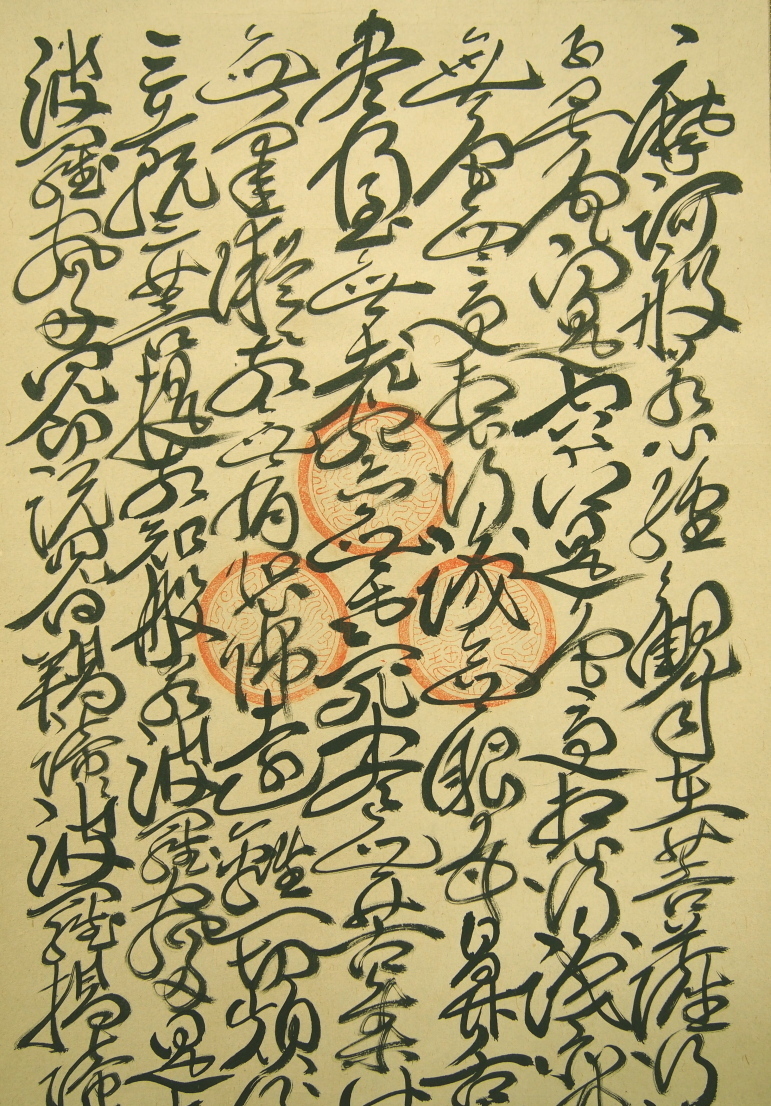 摩訶般若心経 観自在菩薩行
不異色色即是空空即是色受想行識亦
無色無受想行識無眼耳鼻舌
盡乃至無老死亦無老死盡無苦集
無罣礙故無有恐怖遠離一切顛
三藐三菩提故知般若波羅蜜多是
波羅蜜多呪即説呪曰羯諦々波羅羯諦